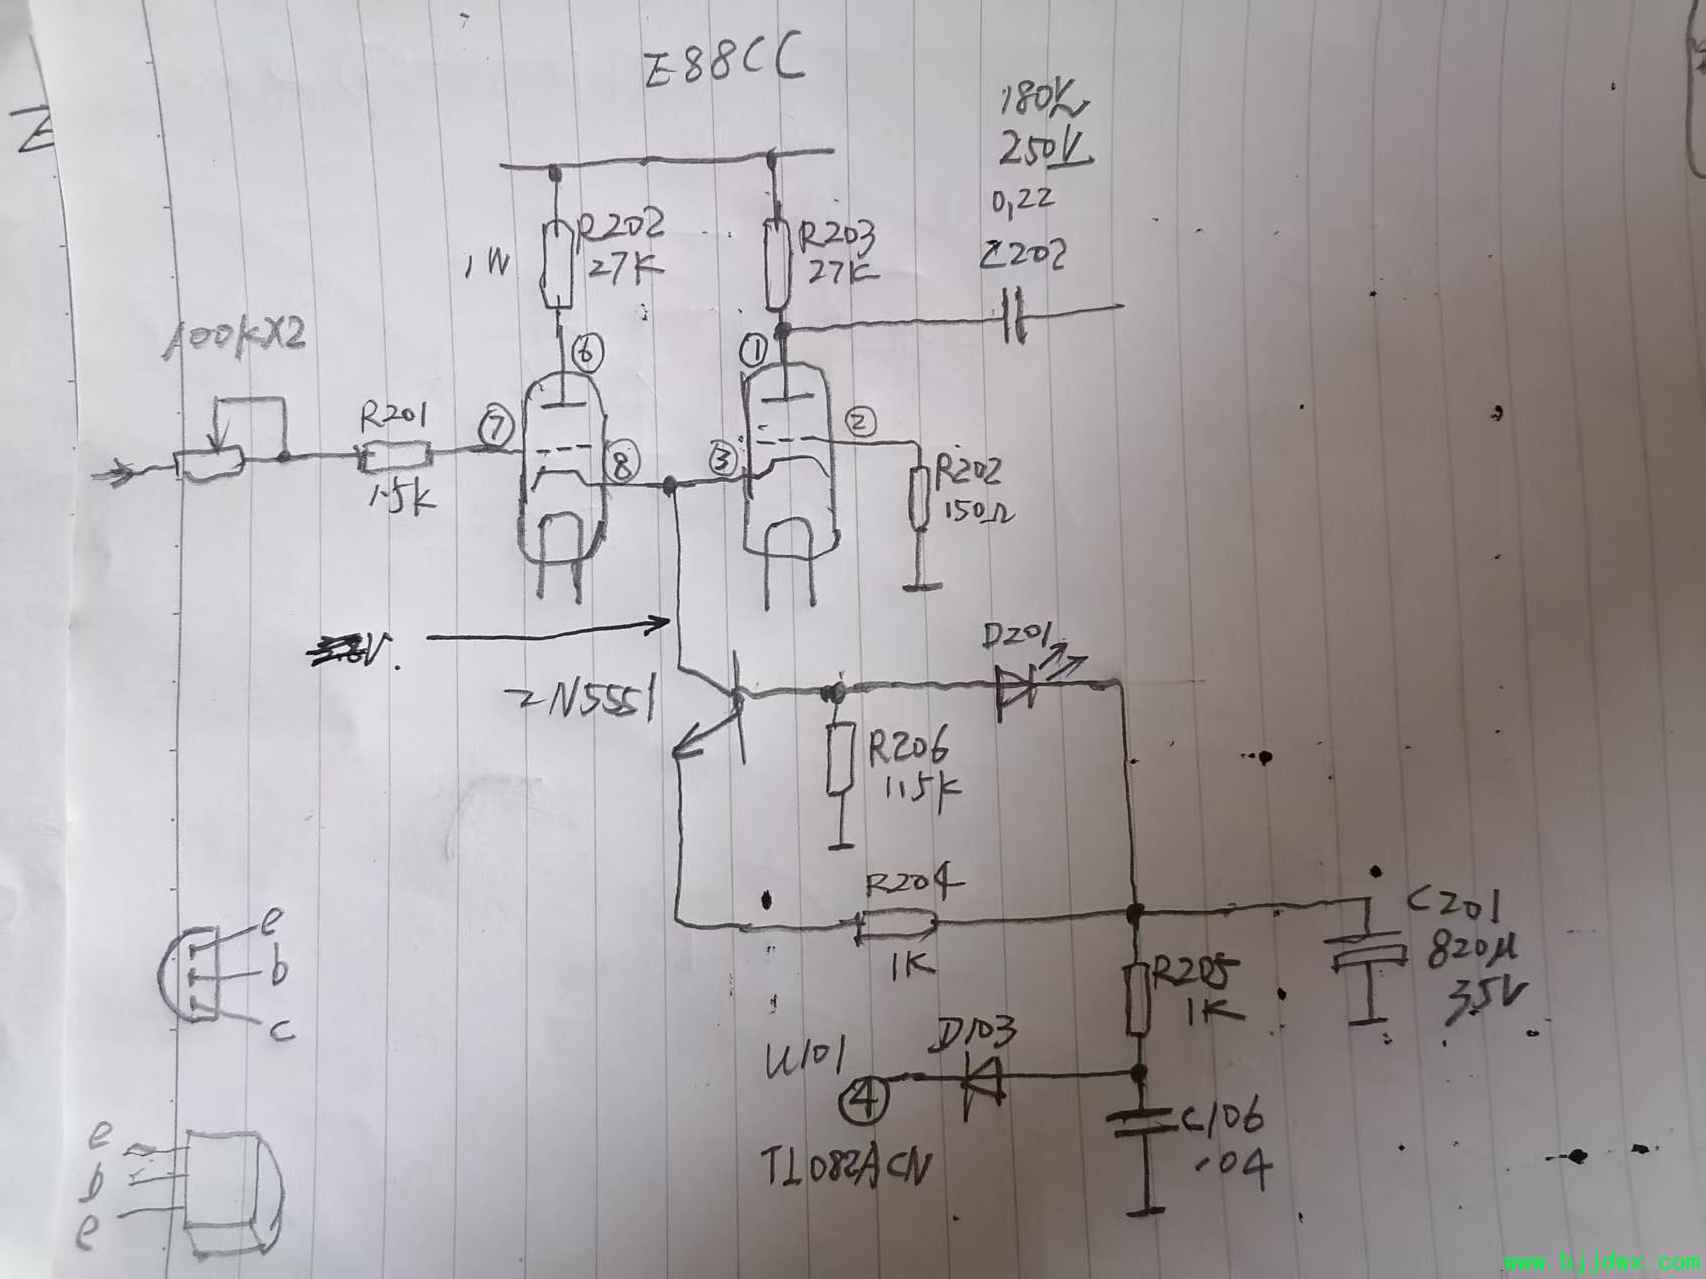 E88CC
180V
250V
0,22
C202
R202
27K
1W
R203
27K
100K×2
R201
1.5K
⑥
①
⑦
⑧
③
②
R202
150Ω
V.
2N5551
D201
R206
11.5K
R204
1K
C201
820μ
35V
R205
1K
D103
U101
④
TL082ACN
C106
.04
e
b
c
e
b
e